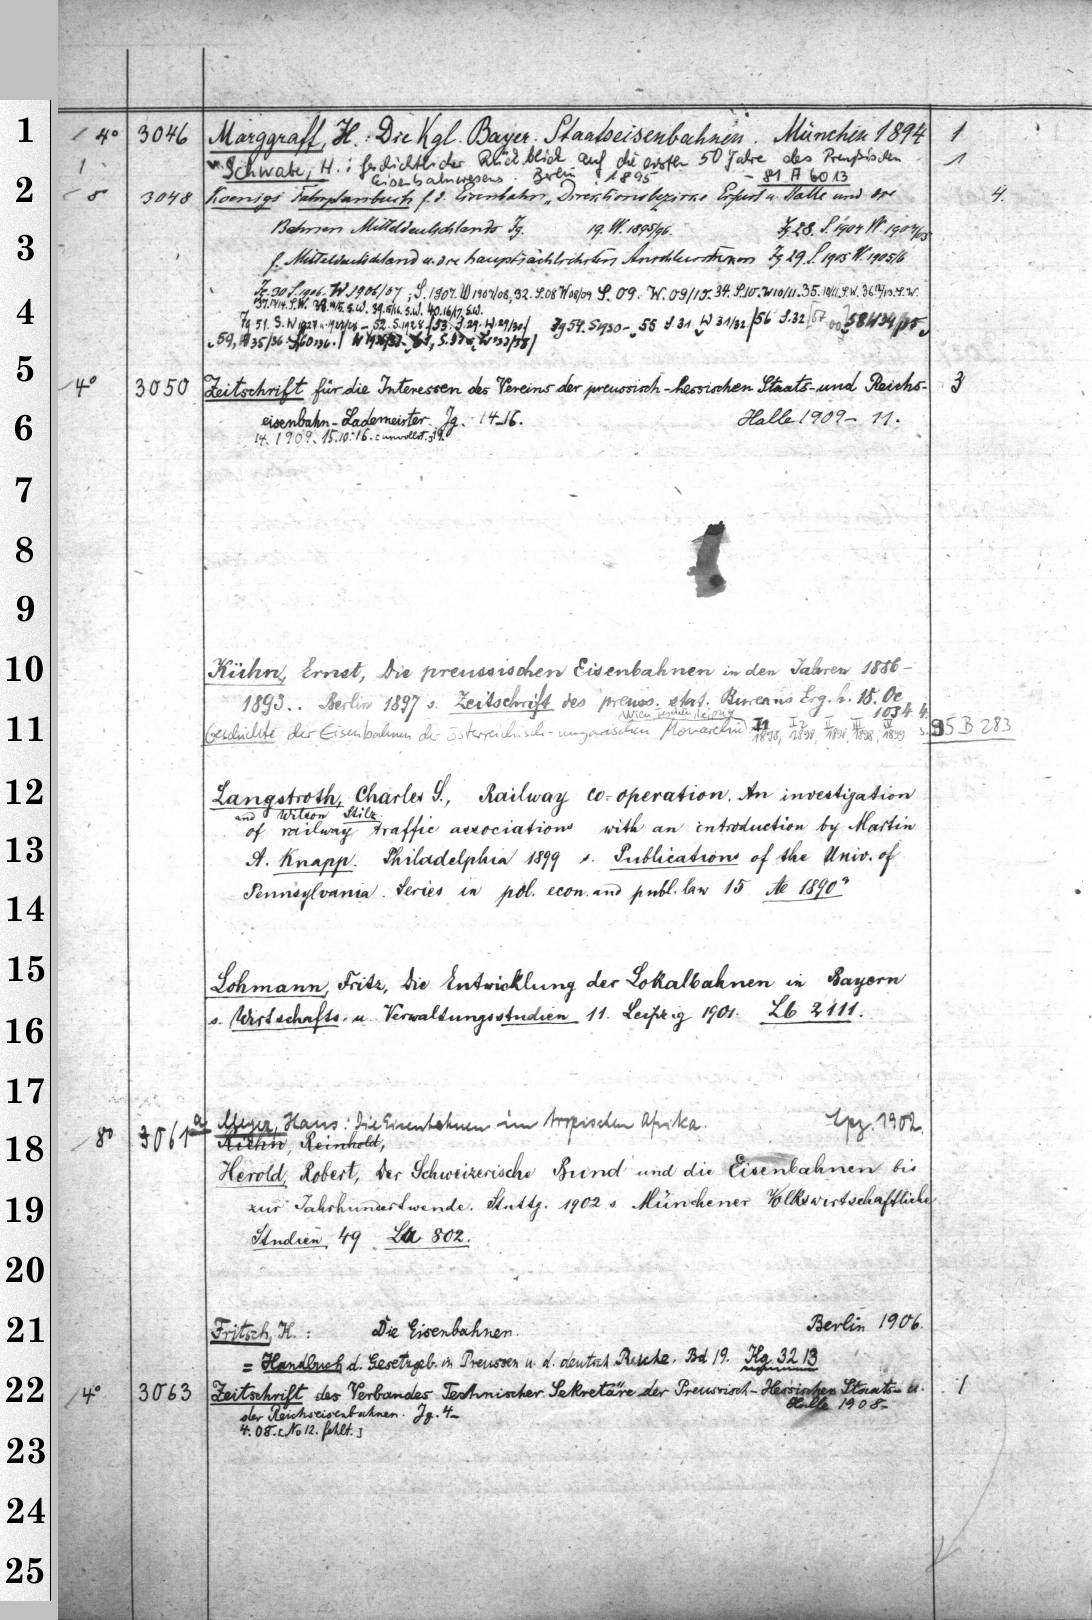 1 4° 3046 Marggraff, H.: Die Kgl. Bayer. Staatseisenbahnen. München 1894 1
Schwabe, H.: Geschichtlicher Rückblick auf die ersten 50 Jahre des Preußischen 1
Eisenbahnwesens. Berlin 1895 - 81 A 6013
2 8 3048 Koenigs Fahrplanbuch f. d. Eisenbahn-Direktionsbezirke Erfurt u. Halle und 4.
Bahnen Mitteldeutschlands Jg. 19. W. 1895/96. Jg. 28. S. 1904 W. 1904/05
3 f. Mitteldeutschland u. die hauptsächlichsten Jg 29. S. 1905 W. 1905/6
Jg. 30 S. 1906. W. 1906/07; S. 1907. W 1907/08, 32. S. 08 W 08/09 S. 09. W. 09/10. 34. S. 10. W 10/11. 35.
4 Jg 51. S. W 1927 52. S. 1928 53. S. 29. W. 29/30 Jg 54. S 1930- 55 S. 31. W 31/32 56 S. 32 57 58 W 34/35
59, W 35/36
5 4° 3050 Zeitschrift für die Interessen des Vereins der preussisch-hessischen Staats- und Reichs- 3
6 eisenbahn-Lademeister. Jg. 14-16. Halle 1909 - 11.
14. 1909. 15. 10. 16. unvollst.
7
8
9
10 Kühn, Ernst, Die preussischen Eisenbahnen in den Jahren 1886-
1893.. Berlin 1897 s. Zeitschrift des preuss. stat. Bureaus Erg. h. 18. Oc
1034 4.
Wien Teschen Leipzig
11 Geschichte der Eisenbahnen der österreichisch-ungarischen Monarchie I1 1898, I2 1898, II 1898, III 1898, IV 1899 s. 95 B 283
12 Langstroth, Charles S., Railway co-operation. An investigation
and Wilson Stilz
of railway traffic associations with an introduction by Martin
13 A. Knapp. Philadelphia 1899 s. Publications of the Univ. of
14 Pennsylvania. Series in pol. econ. and publ. law 15 Ae 1890ª
15 Lohmann, Fritz, Die Entwicklung der Lokalbahnen in Bayern
16 s. Wirtschafts- u. Verwaltungsstudien 11. Leipzig 1901. Lb 2111.
17
8° 3061a Meyer, Hans: Die Eisenbahnen im tropischen Afrika. Lpz. 1902.
18 Kuehn, Reinhold,
Herold, Robert, Der Schweizerische Bund und die Eisenbahnen bis
19 zur Jahrhundertwende. Stuttg. 1902 s Münchener Volkswirtschaftliche
Studien 49 La 802.
20
21 Fritsch, H.: Die Eisenbahnen. Berlin 1906.
= Handbuch d. Gesetzgeb. in Preussen u. d. deutsch. Reiche. Bd 19. Kg 3213
22 4° 3063 Zeitschrift des Verbandes Technischer Sekretäre der Preussisch-Hessischen Staats- u. 1
der Reichseisenbahnen. Jg. 4- Halle 1908-
4. 08. [No 12. fehlt.]
23
24
25